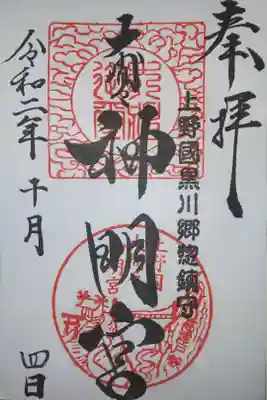 奉拝
上野國黒川郷惣鎮守
神明宮
令和二年 十月 四日